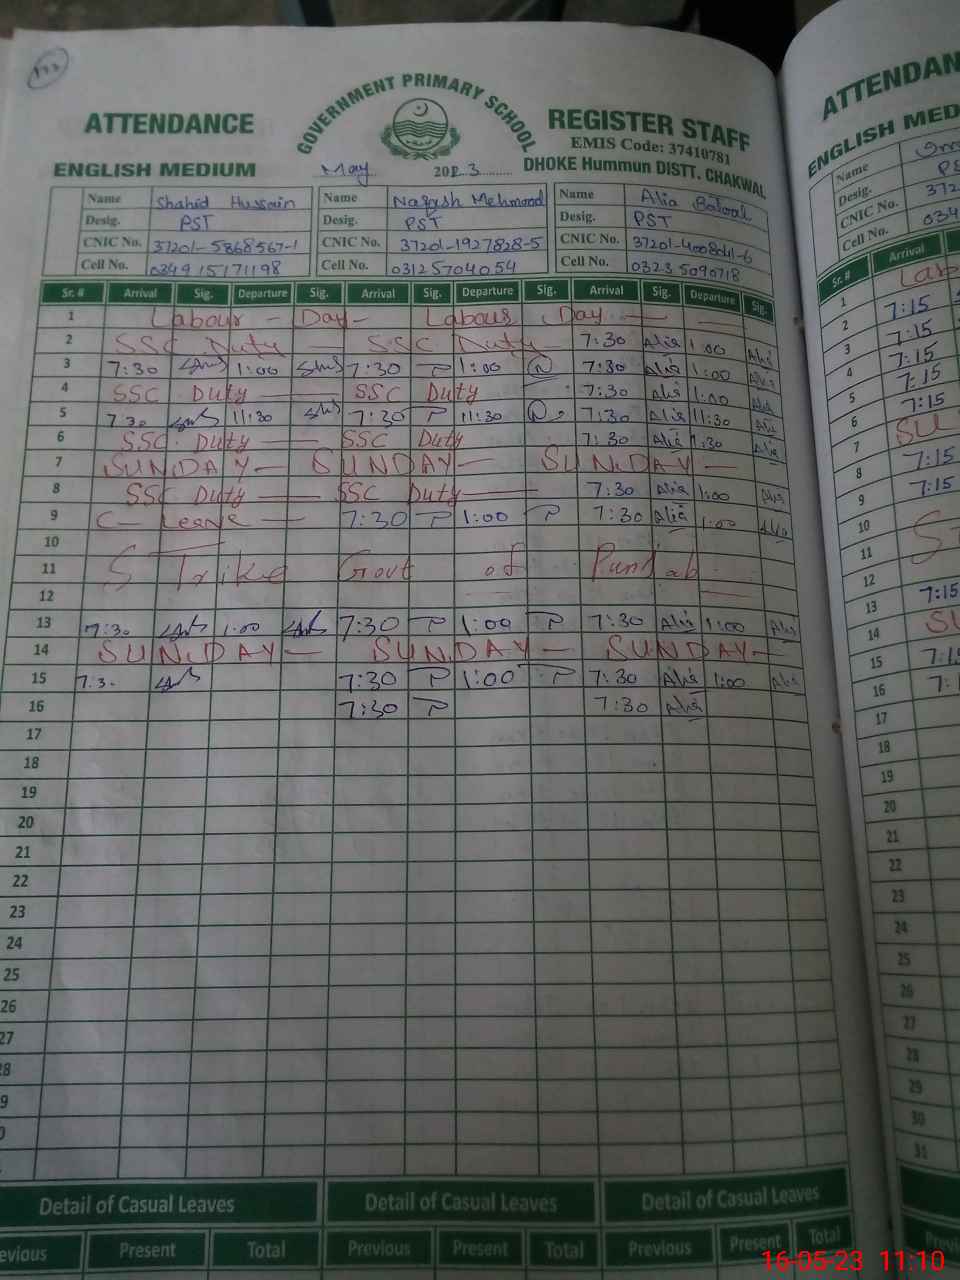 133
GOVERNMENT PRIMARY SCHOOL
ATTENDANCE REGISTER STAFF
EMIS Code: 37410781
ENGLISH MEDIUM May 2023 DHOKE Hummun DISTT. CHAKWAL
Name Shahid Hussain Name Naqash Mehmood Name Alia Batool
Desig. PST Desig. PST Desig. PST
CNIC No. 37201-5868567-1 CNIC No. 37201-1927828-5 CNIC No. 37201-4008041-6
Cell No. 03491517 1198 Cell No. 03125704054 Cell No. 03235090718
Sr. # Arrival Sig. Departure Sig. Arrival Sig. Departure Sig. Arrival Sig. Departure Sig.
1 Labour - Day - Labour Day
2 SSC Duty SSC Duty 7:30 Alia 1:00 Alia
3 7:30 1:00 7:30 1:00 7:30 Alia 1:00 Alia
4 SSC Duty SSC Duty 7:30 Alia 1:00 Alia
5 7:30 11:30 7:30 11:30 7:30 Alia 11:30 Alia
6 SSC Duty SSC Duty 7:30 Alia 1:30 Alia
7 SUNDAY - SUNDAY - SUNDAY -
8 SSC Duty SSC Duty 7:30 Alia 1:00 Alia
9 C- Leave 7:30 1:00 7:30 Alia 1:00 Alia
10
11 STrike Govt of Punjab
12
13 7:30 1:00 7:30 1:00 7:30 Alia 1:00 Alia
14 SUNDAY - SUNDAY - SUNDAY -
15 7:30 7:30 1:00 7:30 Alia 1:00 Alia
16 7:30 7:30 Alia
17
18
19
20
21
22
23
24
25
26
27
28
9
0
Detail of Casual Leaves Detail of Casual Leaves Detail of Casual Leaves
evious Present Total Previous Present Total Previous Present Total
ATTENDAN
ENGLISH MED
Name
Desig. PS
CNIC No. 372
Cell No. 034
Sr. # Arrival
1 Lab
2 7:15
3 7:15
4 7:15
5 7:15
6 7:15
7 SU
8 7:15
9 7:15
10
11 S
12
13 7:15
14 SU
15 7:15
16
17
18
19
20
21
22
23
24
25
26
27
28
29
30
31
16-05-23 11:10